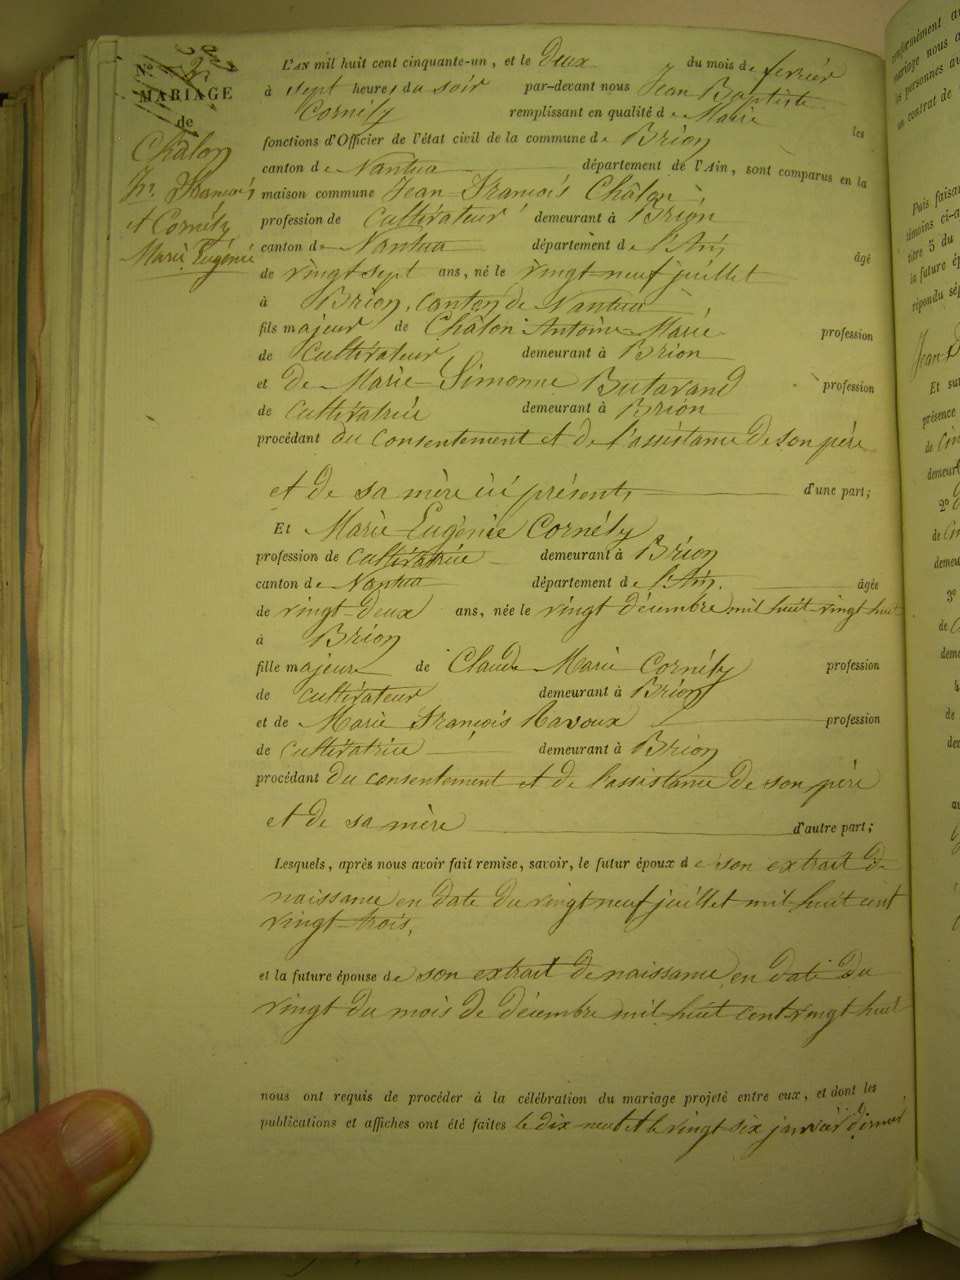 N.°
MARIAGE
de
Châlon
Jn. François
et Cornély
Marie Eugénie
L'AN mil huit cent cinquante-un, et le deux du mois de février
à sept heures du soir par-devant nous Jean Baptiste
Cornély remplissant en qualité de Maire les
fonctions d'Officier de l'état civil de la commune de Brion
canton de Nantua département de l'Ain, sont comparus en la
maison commune Jean François Châlon,
profession de Cultivateur demeurant à Brion
canton de Nantua département de l'Ain, âgé
de vingt sept ans, né le vingt neuf juillet
à Brion, canton de Nantua
fils majeur de Châlon Antoine Marie profession
de cultivateur demeurant à Brion
et de Marie Simonne Butavand profession
de cultivatrice demeurant à Brion
procédant du consentement et de l'assistance de son père
et de sa mère ici présents, d'une part;
Et Marie Eugénie Cornély
profession de cultivatrice demeurant à Brion
canton de Nantua département de l'Ain, âgée
de vingt-deux ans, née le vingt décembre mil huit vingt huit
à Brion
fille majeure de Claude Marie Cornély profession
de cultivateur demeurant à Brion
et de Marie François Ravoux profession
de cultivatrice demeurant à Brion
procédant du consentement et de l'assistance de son père
et de sa mère d'autre part;
Lesquels, après nous avoir fait remise, savoir, le futur époux de son extrait de
naissance en date du vingt neuf juillet mil huit cent
vingt-trois,
et la future épouse de son extrait de naissance en date du
vingt du mois de décembre mil huit cent vingt huit
nous ont requis de procéder à la célébration du mariage projeté entre eux, et dont les
publications et affiches ont été faites le dix neuf et le vingt six janvier dernier
conformément
mariage nous
les personnes
un contrat de
Puis faisant
témoins ci-
titre 5 du
la future ép
répondu sép
Jean
Et sur
présence
de
demeurt
2°
de
demeu
3°
de
dem
4
de